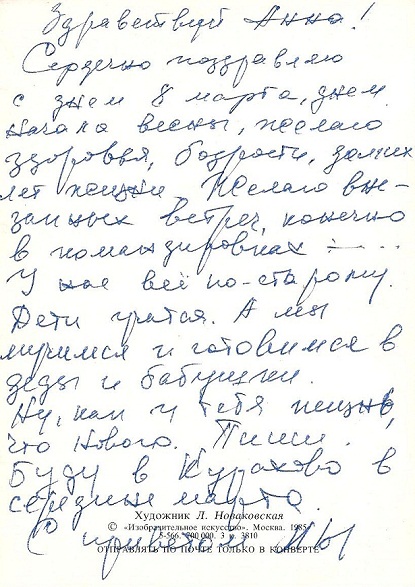 Здравствуй Анна!
Сердечно поздравляю
с днем 8 марта, днем
начала весны, желаю
здоровья, бодрости, долгих
лет жизни. Желаю вне-
запных встреч, конечно
в командировках
У нас всё по-старому.
Дети учатся. А мы
миримся и готовимся в
деды и бабушки.
Ну, как у тебя жизнь,
что нового. Пиши.
Буду в Курахово в
середине марта.
Художник Л. Новаковская
© «Изобразительное искусство». Москва. 1985
5-566. 700 000. 3 к. 3810
С приветом МЫ
ОТПРАВЛЯТЬ ПО ПОЧТЕ ТОЛЬКО В КОНВЕРТЕ